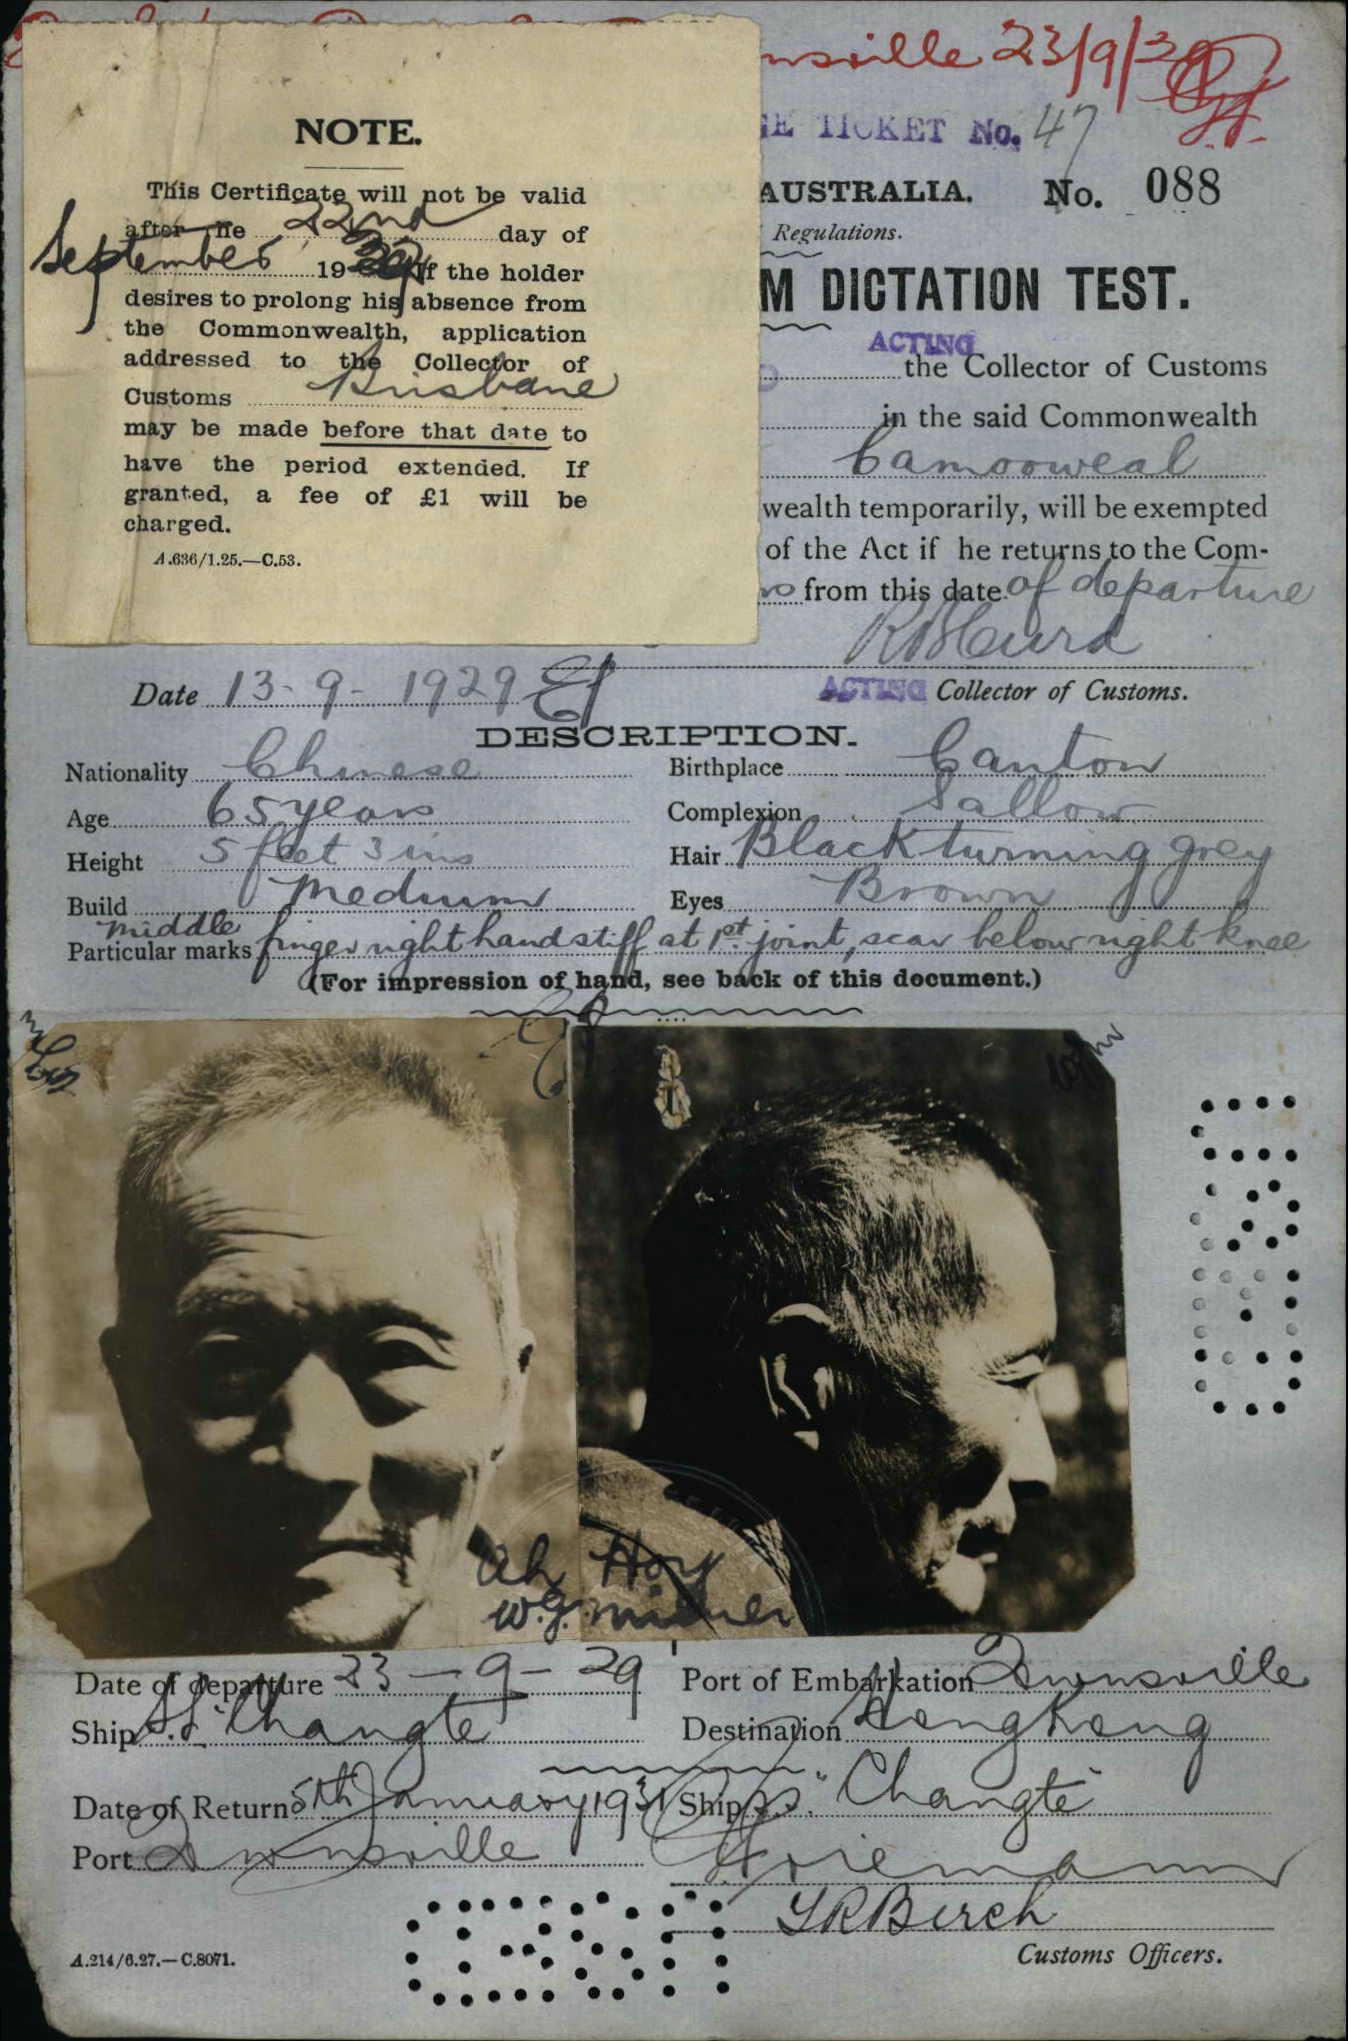 nsville 23/9/29
GE TICKET No. 47
NOTE.
This Certificate will not be valid
after the 22nd day of
September 19 If the holder
desires to prolong his absence from
the Commonwealth, application
addressed to the Collector of
Customs Brisbane
may be made before that date to
have the period extended. If
granted, a fee of £1 will be
charged.
A.636/1.25.—C.53.
AUSTRALIA. No. 088
Regulations.
M DICTATION TEST.
ACTING
the Collector of Customs
in the said Commonwealth
Camooweal
wealth temporarily, will be exempted
of the Act if he returns to the Com-
from this date of departure
Date 13-9-1929
ACTING Collector of Customs.
DESCRIPTION.
Nationality Chinese Birthplace Canton
Age 65 years Complexion Sallow
Height 5 feet 3 ins Hair Black turning grey
Build Medium Eyes Brown
Particular marks middle finger right hand stiff at 1st joint, scar below right knee
(For impression of hand, see back of this document.)
Ah Hoy
Date of departure 23-9-29 Port of Embarkation Townsville
Ship S.S. "Changte" Destination Hong Kong
Date of Return 5th January 1931 Ship S.S. "Changte"
Port Townsville
Customs Officers.
A.214/6.27.—C.8071.